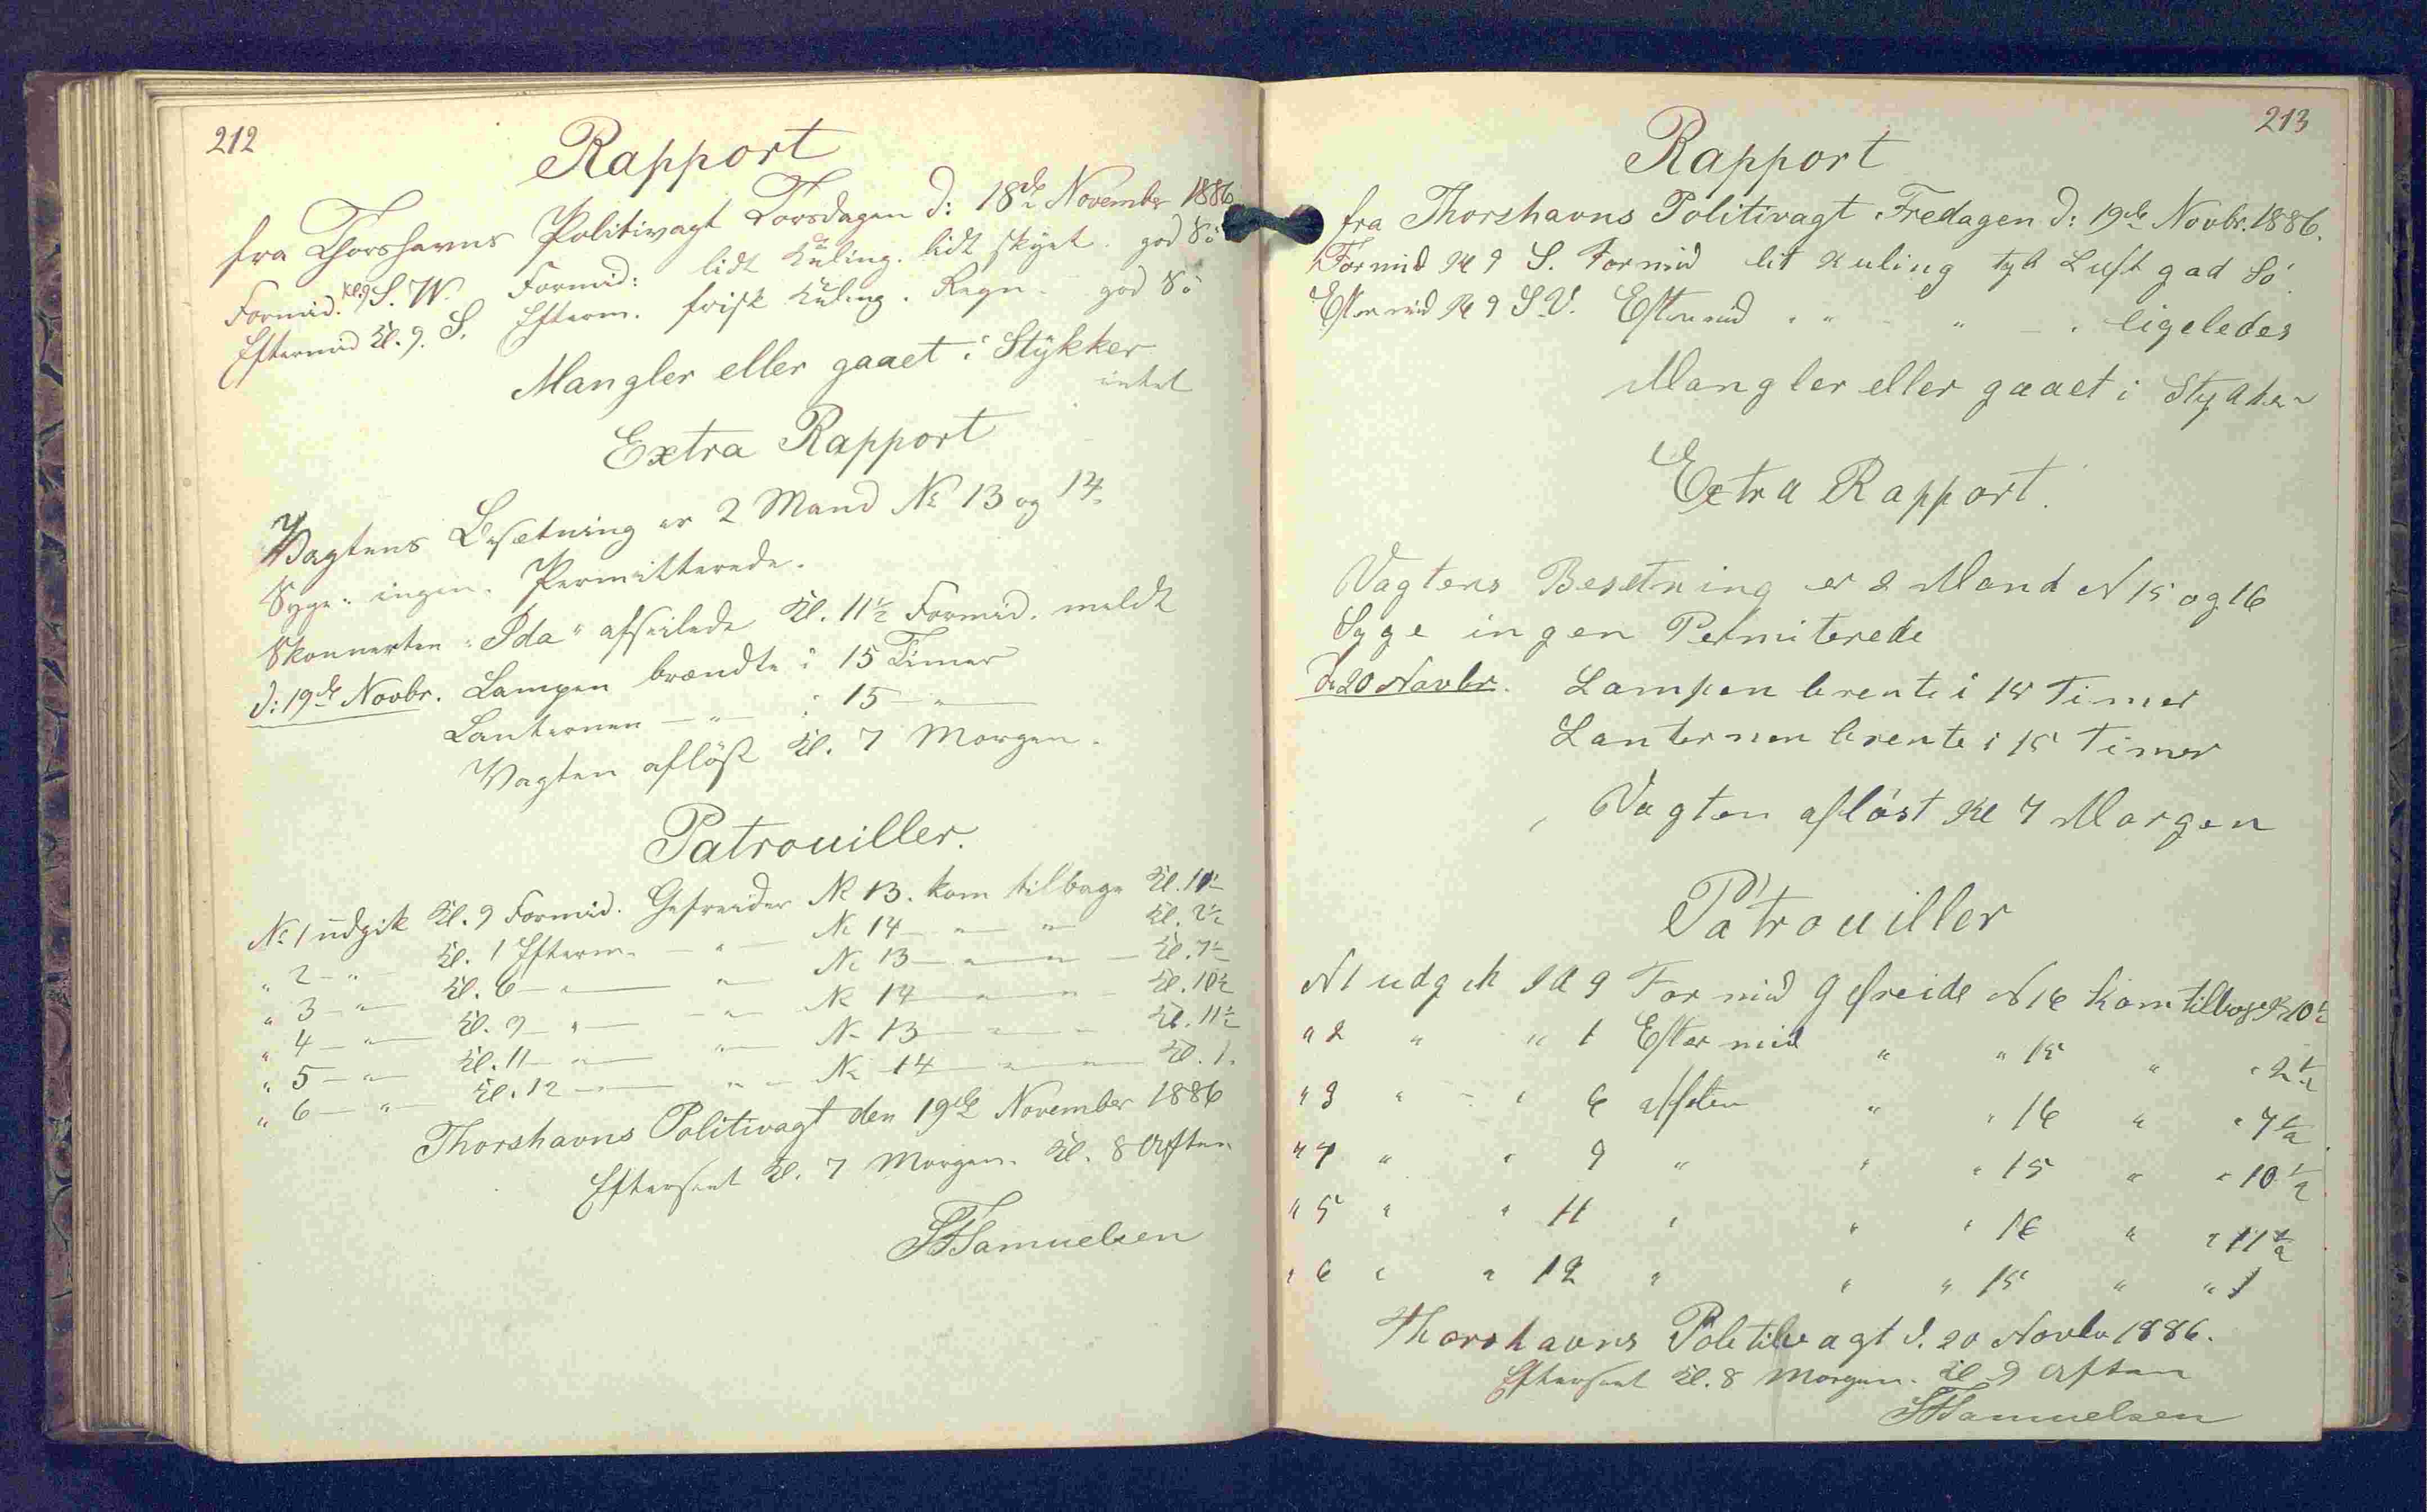 212
Rapport
fra Thorshavns Politivagt Torsdagen d: 18de November 1886
Formid. Kl. 9 S. W. Formid: lidt Kuling. lidt skyet. god Sö
Eftermid Kl. 9. S. Efterm. frisk Kuling. Regn. god Sö
Mangler eller gaaet i Stykker
intet
Extra Rapport
Vagtens Besætning er 2 Mand No 13 og 14.
Syge: ingen. Permitterede.
Skonnerten "Ida" afseilede Kl. 11½ Formid. meldt
d: 19de Novbr. Lampen brændte i 15 Timer
Lanternen — " — i 15 — " —
Vagten aflöst Kl. 7 Morgen.
Patrouiller.
No 1 udgik Kl. 9 Formid. Gefreider No 13. kom tilbage Kl.
" 2 — " — Kl. 1 Efterm. — " — No 14 — " — " Kl. 2½
" 3 — " — Kl. 6 — " — " — No 13 — " — " — Kl. 7½
" 4 — " — Kl. 9 — " — " — No 14 — " — " — Kl. 10½
" 5 — " — Kl. 11 — " — " — No 13 — " — " — Kl. 11½
" 6 — " — Kl. 12 — " — " — No 14 — " — " — Kl. 1.
Thorshavns Politivagt den 19de November 1886
Efterseet Kl. 7 Morgen. Kl. 8 Aften
Samuelsen
213
Rapport
fra Thorshavns Politivagt Fredagen d: 19de Novbr. 1886.
Formid Kl 9 S. Formid lit Kuling tyk Luft gad Sö
Eftermid Kl 9 S.V. Eftermid " " " — " ligeledes
Mangler eller gaaet i Stykker
Extra Rapport.
Vagtens Besætning er 2 Mand N 15 og 16
Syge ingen Permiterede
d. 20 Novbr. Lampen brente i 15 Timer
Lanternen brente i 15 Timer
Vagten aflöst Kl 7 Morgen
Patrouiller
N 1 udgik Kl 9 Formid gefreide N 16 kom tilbage Kl 10½
" 2 " " 1 Eftermid " " 15 " " 2½
" 3 " - " 6 aften " " 16 " " 7½
" 4 " " 9 " " " 15 " " 10½
" 5 " " 11 " " " 16 " " 11½
" 6 " " 12 " " " 15 " " 1
Thorshavns Politivagt d. 20 Novbr 1886.
Efterseet Kl. 8 Morgen. Kl 9 Aften
Samuelsen